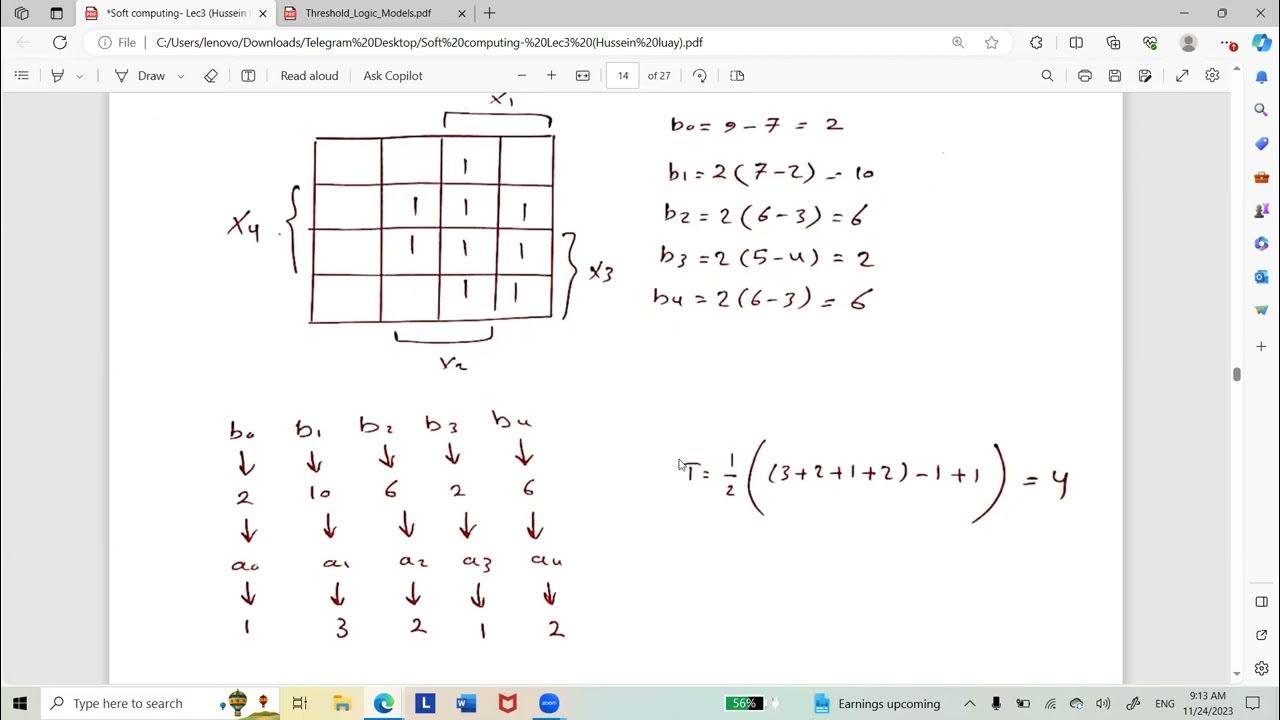 *Soft computing- Lec3 (Hussein
Threshold_Logic_Models.pdf
File
C:/Users/lenovo/Downloads/Telegram%20Desktop/Soft%20computing-%20Lec3%20(Hussein%20luay).pdf
Draw
Read aloud
Ask Copilot
14
of 27
x1
1
1 1 1
1 1 1
1 1
x4
x3
x2
b0 = 9 - 7 = 2
b1 = 2(7-2) - 10
b2 = 2(6-3) = 6
b3 = 2(5-4) = 2
b4 = 2(6-3) = 6
b0 b1 b2 b3 b4
↓ ↓ ↓ ↓ ↓
2 10 6 2 6
↓ ↓ ↓ ↓ ↓
a0 a1 a2 a3 a4
↓ ↓ ↓ ↓ ↓
1 3 2 1 2
T = 1/2 ((3+2+1+2)-1+1) = 4
Type here to search
L
W
zoom
56%
Earnings upcoming
ENG
9:13 AM
11/24/2023